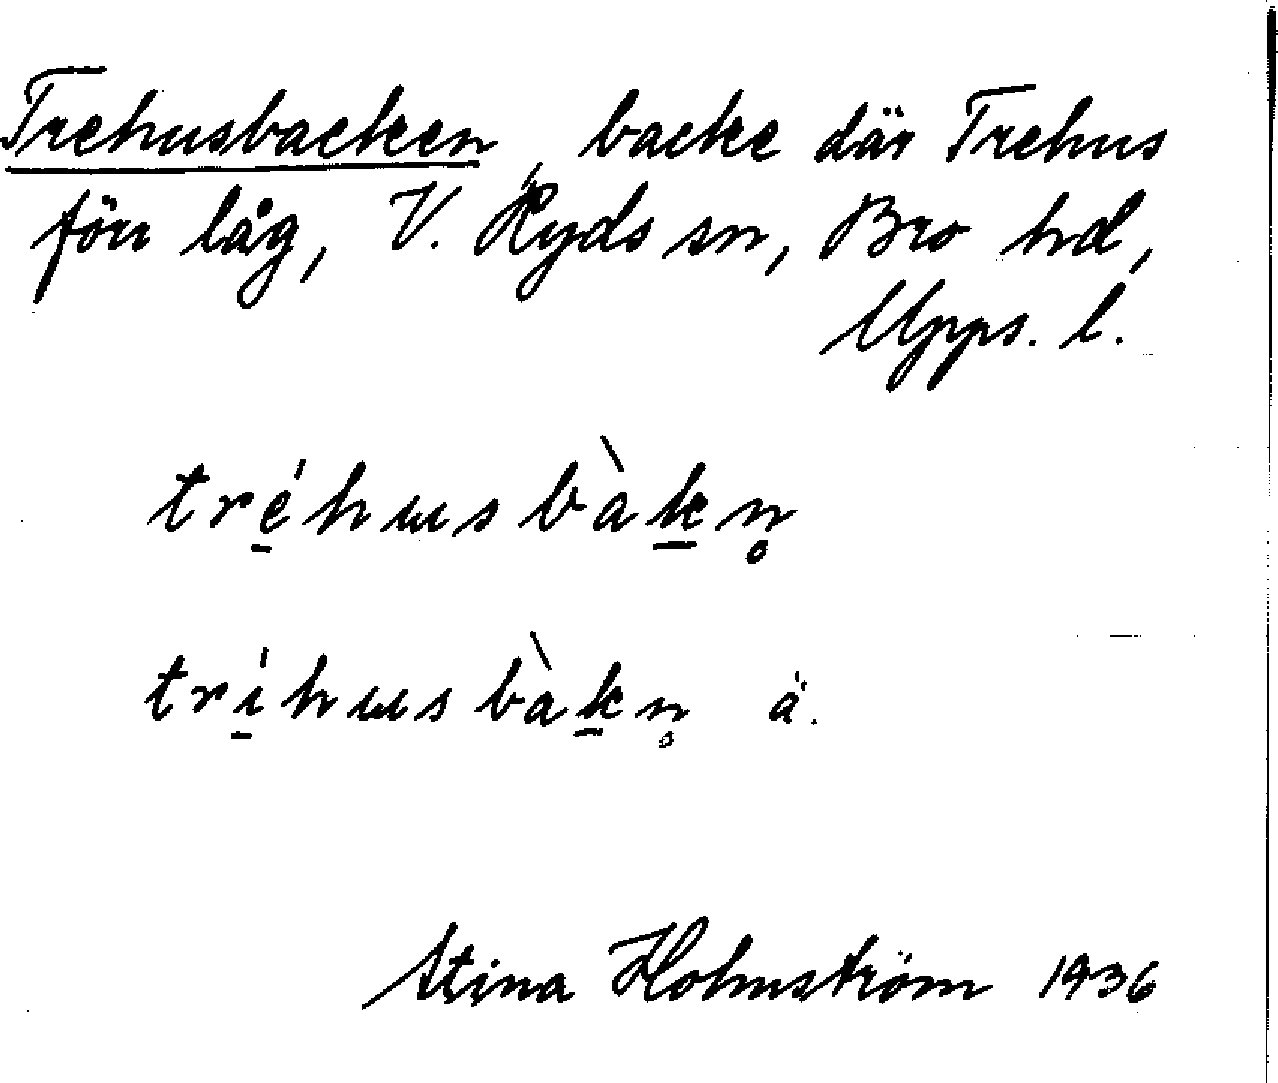 Trehusbacken, backe där Trehus
förr låg, V. Ryds sn, Bro hd,
Upps. l.
tré̱husbàḵn̥
trí̱husbàḵn̥ ä.
Stina Holmström 1936